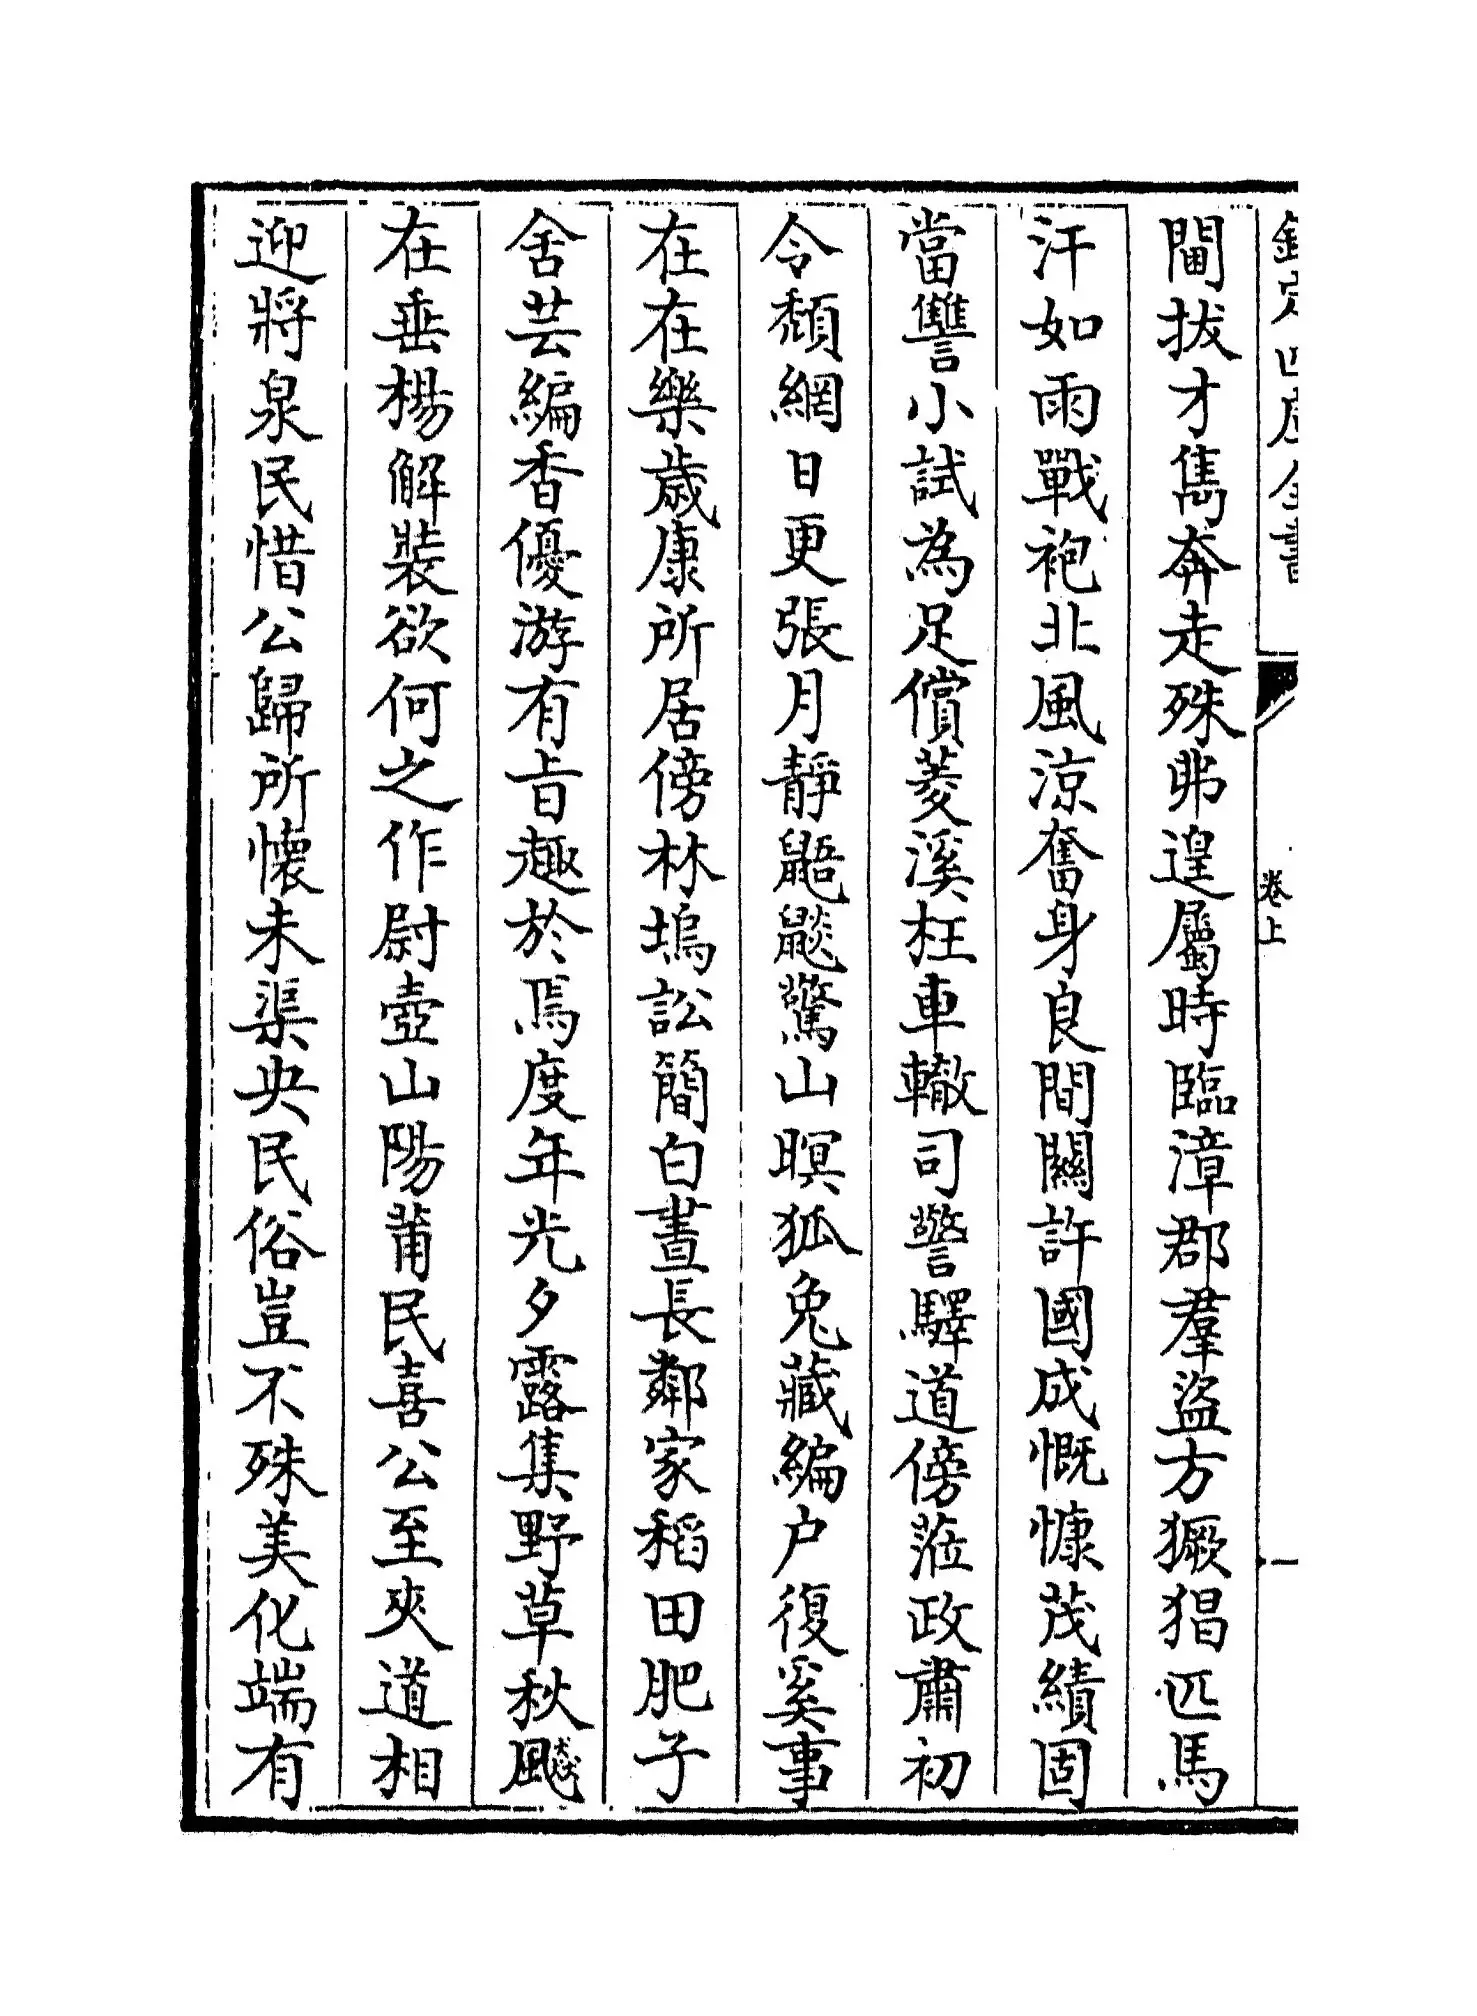 欽定四庫全書
卷上
一
閫拔才雋奔走殊弗遑屬時臨漳郡羣盜方獗猖匹馬
汗如雨戰袍北風涼奮身良間關許國成慨慷茂績固
當讐小試為足償菱溪枉車轍司警驛道傍蒞政肅初
令頹網日更張月靜鼯鼪驚山暝狐兔藏編户復奚事
在在樂歲康所居傍林塢訟簡白晝長鄰家稻田肥子
舍芸編香優游有旨趣於焉度年光夕露集野草秋飈
在垂楊解裝欲何之作尉壺山陽莆民喜公至夾道相
迎將泉民惜公歸所懷未渠央民俗豈不殊美化端有